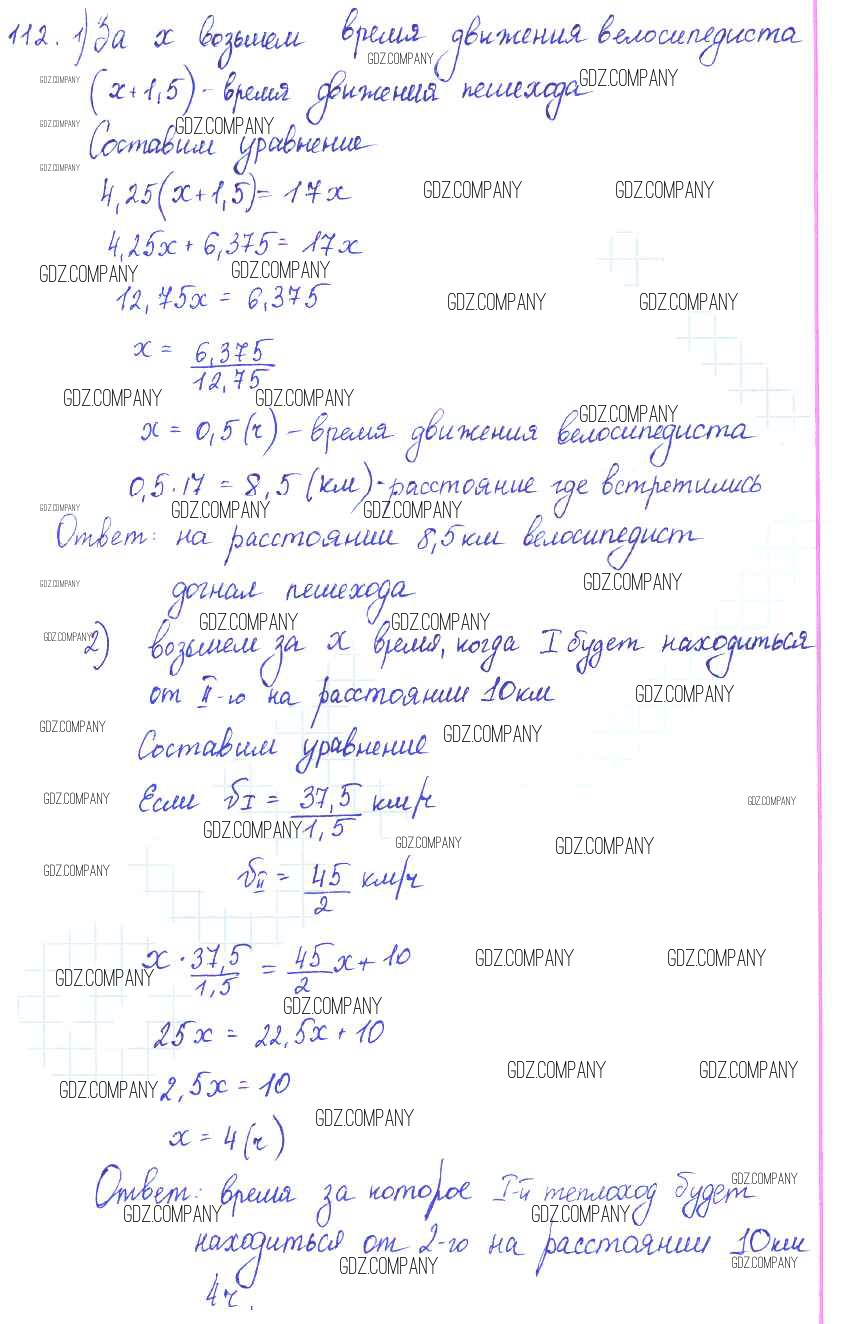 112. 1) За x возьмем время движения велосипедиста
GDZ.COMPANY
(x+1,5) - время движения пешехода
GDZ.COMPANY GDZ.COMPANY
GDZ.COMPANY GDZ.COMPANY
Составим уравнение
GDZ.COMPANY
4,25(x+1,5)= 17x
GDZ.COMPANY GDZ.COMPANY
4,25x + 6,375 = 17x
GDZ.COMPANY GDZ.COMPANY
12,75x = 6,375
GDZ.COMPANY GDZ.COMPANY
x = 6,375
12,75
GDZ.COMPANY GDZ.COMPANY
GDZ.COMPANY
x = 0,5 (ч) - время движения велосипедиста
0,5 · 17 = 8,5 (км) - расстояние где встретились
GDZ.COMPANY GDZ.COMPANY GDZ.COMPANY
Ответ: на расстоянии 8,5 км велосипедист
GDZ.COMPANY GDZ.COMPANY
догнал пешехода
GDZ.COMPANY GDZ.COMPANY
GDZ.COMPANY
2) возьмем за x время, когда I будет находиться
от II-го на расстоянии 10 км
GDZ.COMPANY
GDZ.COMPANY GDZ.COMPANY
Составим уравнение
Если υI = 37,5 км/ч
1,5
GDZ.COMPANY GDZ.COMPANY
GDZ.COMPANY GDZ.COMPANY GDZ.COMPANY
GDZ.COMPANY
υII = 45 км/ч
2
x · 37,5 = 45 x + 10
1,5 2
GDZ.COMPANY GDZ.COMPANY GDZ.COMPANY
GDZ.COMPANY
25x = 22,5x + 10
GDZ.COMPANY GDZ.COMPANY
GDZ.COMPANY 2,5x = 10
GDZ.COMPANY
x = 4 (ч)
Ответ: время за которое I-й теплоход будет
GDZ.COMPANY
GDZ.COMPANY GDZ.COMPANY
находиться от 2-го на расстоянии 10 км
GDZ.COMPANY GDZ.COMPANY
4 ч.